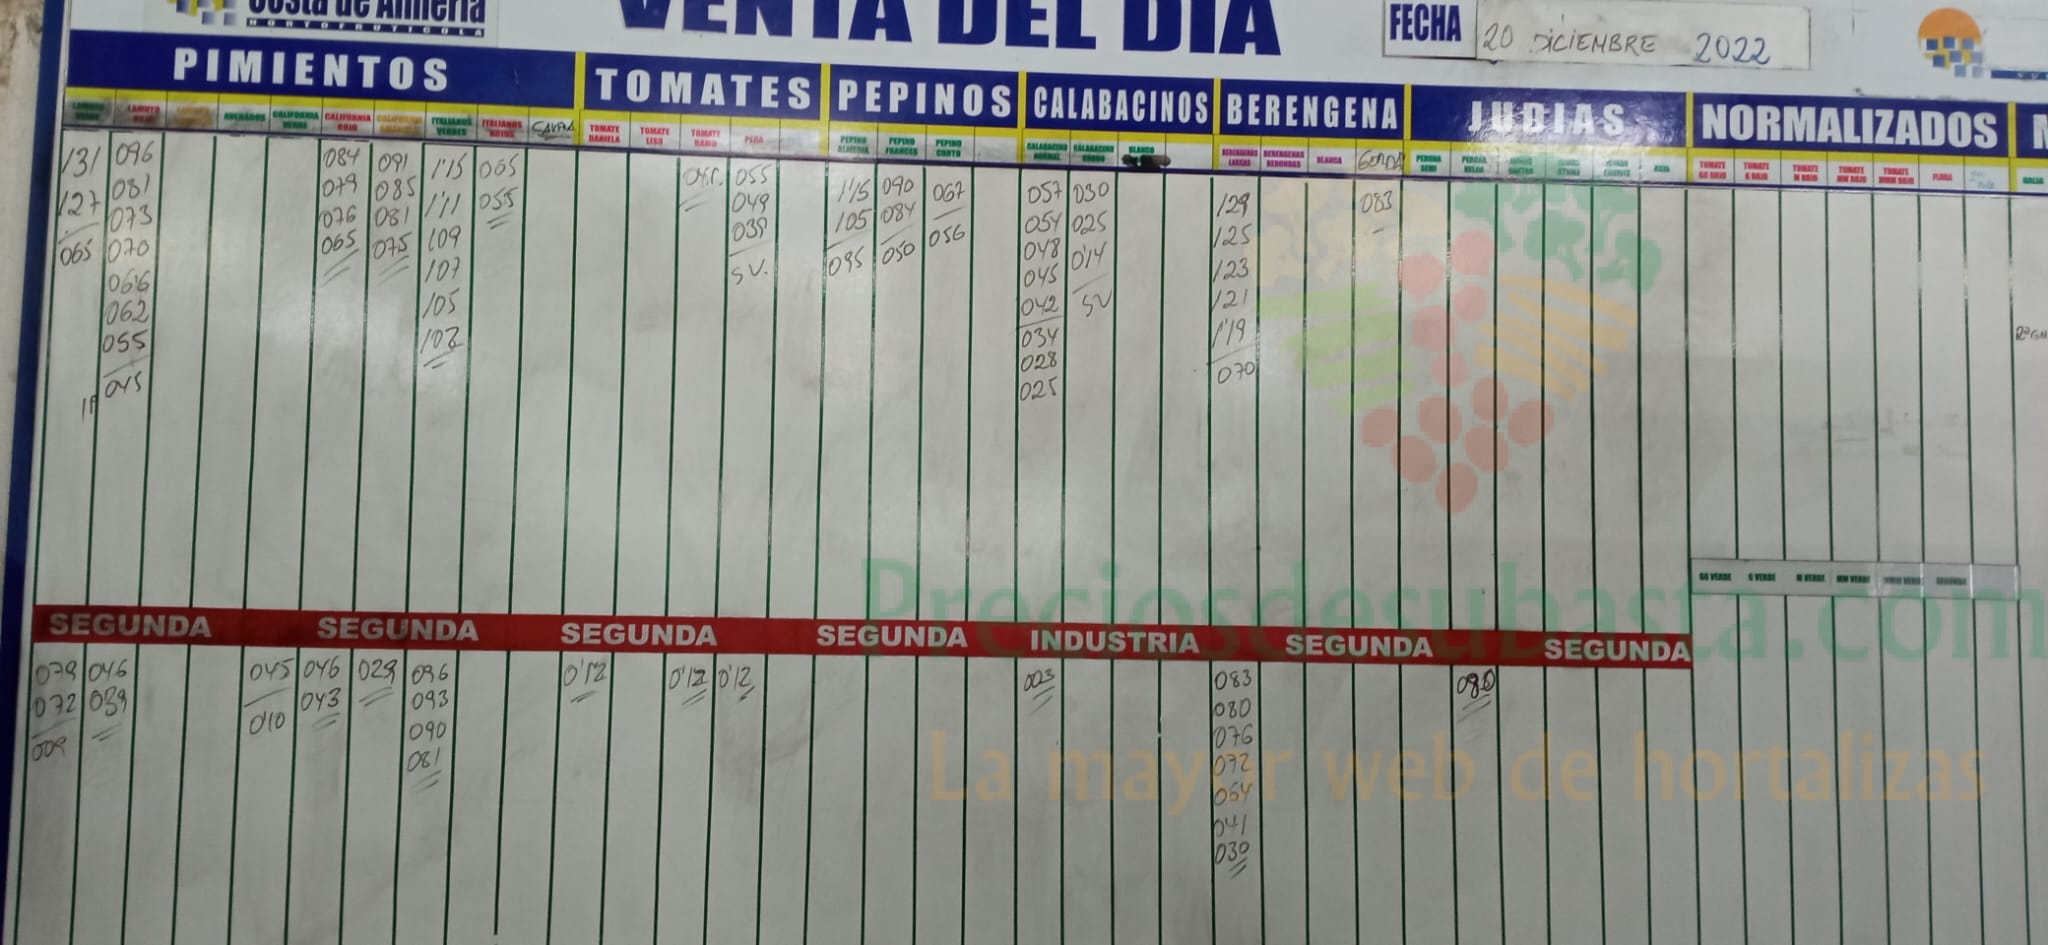 Costa de Almería
HORTOFRUTICOLA
VENTA DEL DIA
FECHA 20 DICIEMBRE 2022
PIMIENTOS TOMATES PEPINOS CALABACINOS BERENGENA JUDIAS NORMALIZADOS
LAMUYO ROJO CALIFORNIA VERDE CALIFORNIA ROJO ITALIANOS VERDES ITALIANOS ROJOS TOMATE DANIELA TOMATE LISO TOMATE RAMO PERA PEPINO ALMERIA PEPINO FRANCES PEPINO CORTO CALABACINO NORMAL CALABACINO GORDO BLANCO BERENGENAS LARGAS BERENGENAS REDONDAS BLANCA GORDA TOMATE GG ROJO TOMATE G ROJO TOMATE M ROJO TOMATE MM ROJO TOMATE MMM ROJO
131 096 084 091 1'15 065 055 1'15 090 067 057 030 129 083
127 081 079 085 1'11 055 049 105 084 056 054 025 125
065 073 076 081 109 039 095 050 048 0'14 123
070 065 075 107 SV. 045 SV 121
066 105 042 1'19
062 102 034 070
055 028
045 025
GG VERDE G VERDE M VERDE MM VERDE MMM VERDE SEGUNDA
SEGUNDA SEGUNDA SEGUNDA SEGUNDA INDUSTRIA SEGUNDA SEGUNDA
079 046 045 046 029 096 0'12 0'12 0'12 003 083 080
072 039 0'10 043 093 080
009 090 076
081 072
064
041
030
Preciosdesubasta.com
La mayor web de hortalizas